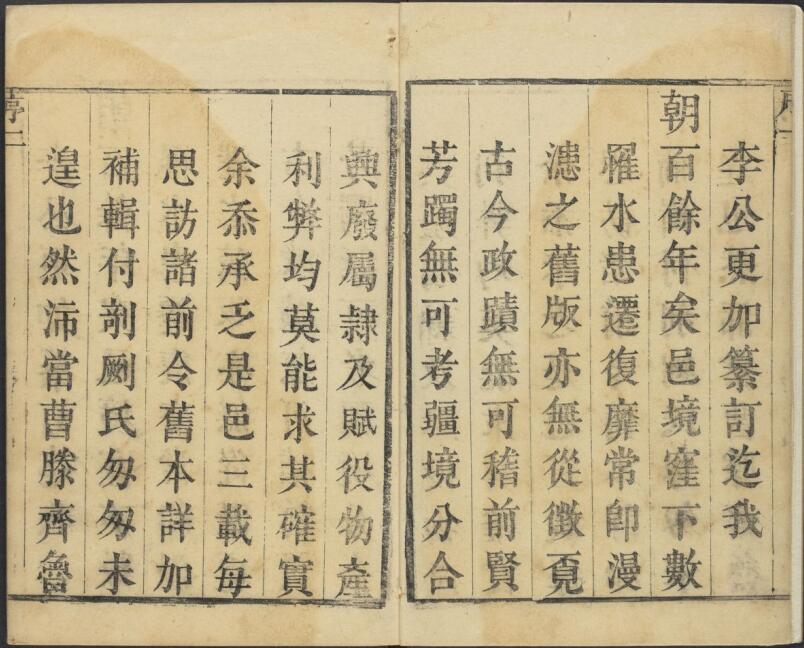 李公更加纂訂迄我
朝百餘年矣邑境窪下數
罹水患遷復靡常卽漫
漶之舊版亦無從徵覓
古今政蹟無可稽前賢
芳躅無可考疆境分合
興廢屬隷及賦役物產
利弊均莫能求其確實
余忝承乏是邑三載每
思訪諸前令舊本詳加
補輯付剞劂氏匆匆未
遑也然沛當曹滕齊魯
序二